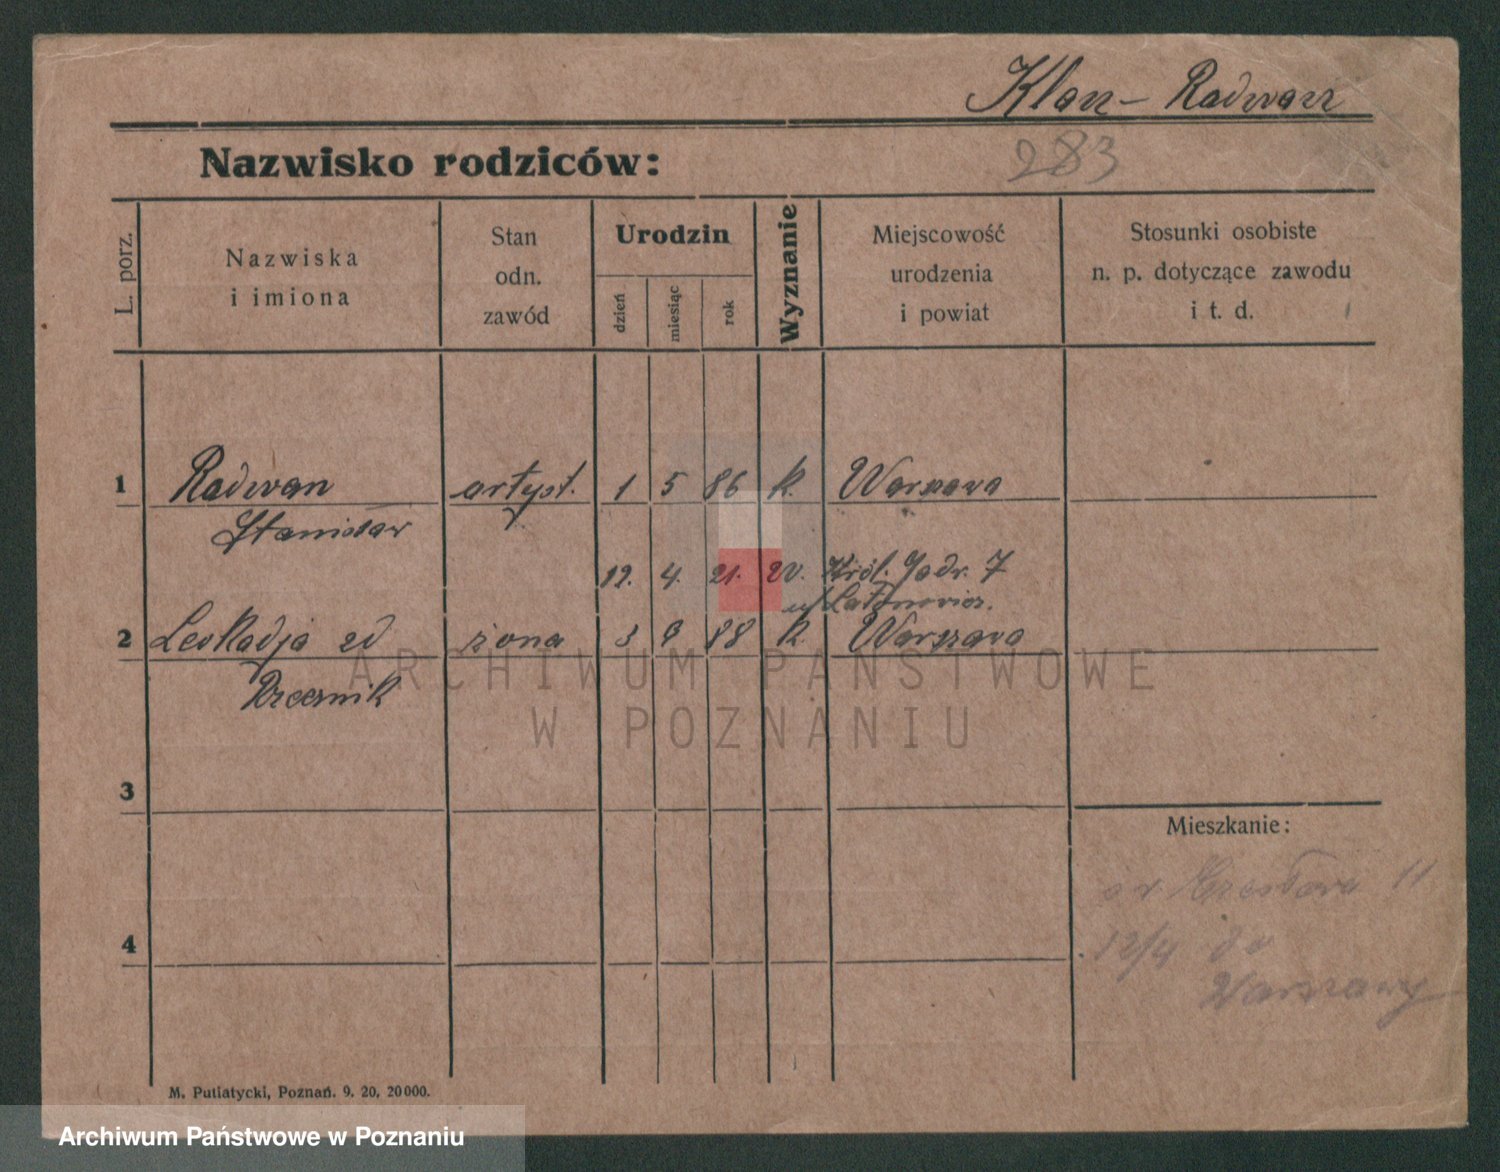 Klar - Radwan
283
Nazwisko rodziców:
L. porz.
Nazwiska
i imiona
Stan
odn.
zawód
Urodzin
dzień
miesiąc
rok
Wyznanie
Miejscowość
urodzenia
i powiat
Stosunki osobiste
n. p. dotyczące zawodu
i t. d.
1 Radwan artyst. 1 5 86 k. Warszawa
Stanisław
12. 4. 21. Król. Jadw. 7
2 Leokadja zd żona 3 9 88 k. Warszawa
ARCHIWUM PAŃSTWOWE
W POZNANIU
3
Mieszkanie:
11
4
12/4 do
Warszawy
M. Putiatycki, Poznań. 9. 20, 20 000.
Archiwum Państwowe w Poznaniu